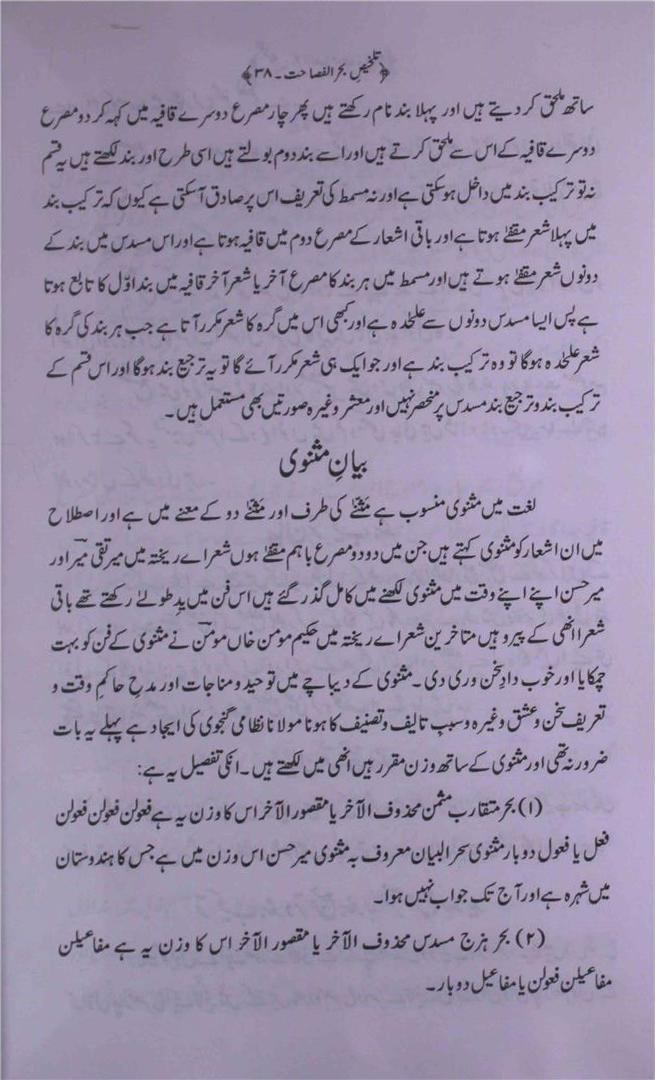 ﴿تلخیص بحر الفصاحت۔۳۸﴾
ساتھ ملحق کر دیتے ہیں اور پہلا بند نام رکھتے ہیں پھر چار مصرع دوسرے قافیہ میں کہہ کر دو مصرع
دوسرے قافیہ کے اس سے ملحق کرتے ہیں اور اسے بند دوم بولتے ہیں اسی طرح اور بند لکھتے ہیں یہ قسم
نہ تو ترکیب بند میں داخل ہو سکتی ہے اور نہ مسمط کی تعریف اس پر صادق آ سکتی ہے کیوں کہ ترکیب بند
میں پہلا شعر مقفےٰ ہوتا ہے اور باقی اشعار کے مصرع دوم میں قافیہ ہوتا ہے اور اس مسدس میں بند کے
دونوں شعر مقفےٰ ہوتے ہیں اور مسمط میں ہر بند کا مصرع آخر یا شعر آخر قافیہ میں بند اوّل کا تابع ہوتا
ہے پس ایسا مسدس دونوں سے علٰحدہ ہے اور کبھی اس میں گرہ کا شعر مکرر آتا ہے جب ہر بند کی گرہ کا
شعر علٰحدہ ہوگا تو وہ ترکیب بند ہے اور جو ایک ہی شعر مکرر آئے گا تو یہ ترجیع بند ہوگا اور اس قسم کے
ترکیب بند و ترجیع بند مسدس پر منحصر نہیں اور معشر وغیرہ صورتیں بھی مستعمل ہیں۔
بیانِ مثنوی
لغت میں مثنوی منسوب ہے مَثنےٰ کی طرف اور مَثنےٰ دو کے معنے میں ہے اور اصطلاح
میں ان اشعار کو مثنوی کہتے ہیں جن میں دو دو مصرع باہم مقفےٰ ہوں شعراے ریختہ میں میر تقی میرؔ اور
میر حسن اپنے اپنے وقت میں مثنوی لکھنے میں کامل گذر گئے ہیں اس فن میں ید طولےٰ رکھتے تھے باقی
شعرا انھی کے پیرو ہیں متاخرین شعراے ریختہ میں حکیم مومن خاں مومنؔ نے مثنوی کے فن کو بہت
چمکایا اور خوب دادِ سخن وری دی۔ مثنوی کے دیباچے میں توحید و مناجات اور مدح حاکم وقت و
تعریف سخن و عشق وغیرہ و سبب تالیف و تصنیف کا ہونا مولانا نظامی گنجوی کی ایجاد ہے پہلے یہ بات
ضرور نہ تھی اور مثنوی کے ساتھ وزن مقرر ہیں انھی میں لکھتے ہیں۔ انکی تفصیل یہ ہے:
(۱) بحر متقارب مثمن محذوف الآخر یا مقصور الآخر اس کا وزن یہ ہے فعولن فعولن فعولن
فعل یا فعول دو بار مثنوی سحر البیان معروف بہ مثنوی میر حسن اس وزن میں ہے جس کا ہندوستان
میں شہرہ ہے اور آج تک جواب نہیں ہوا۔
(۲) بحر ہزج مسدس محذوف الآخر یا مقصور الآخر اس کا وزن یہ ہے مفاعیلن
مفاعیلن فعولن یا مفاعیل دو بار۔